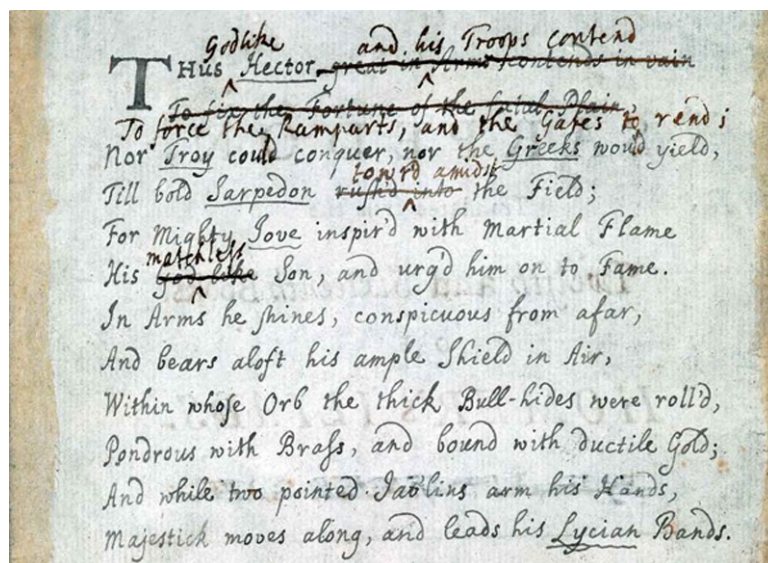 Godlike and his Troops contend
THUS Hector, great in Arms contends in vain
To fix the Fortune of the fatal Plain,
To force the Ramparts, and the Gates to rend;
Nor Troy could conquer, nor the Greeks would yield,
tow'rd amidst
Till bold Sarpedon rush'd into the Field;
For Mighty Jove inspir'd with Martial Flame
matchless
His god-like Son, and urg'd him on to Fame.
In Arms he shines, conspicuous from afar,
And bears aloft his ample Shield in Air,
Within whose Orb the thick Bull-hides were roll'd,
Pondrous with Brass, and bound with ductile Gold;
And while two pointed Jav'lins arm his Hands,
Majestick moves along, and leads his Lycian Bands.